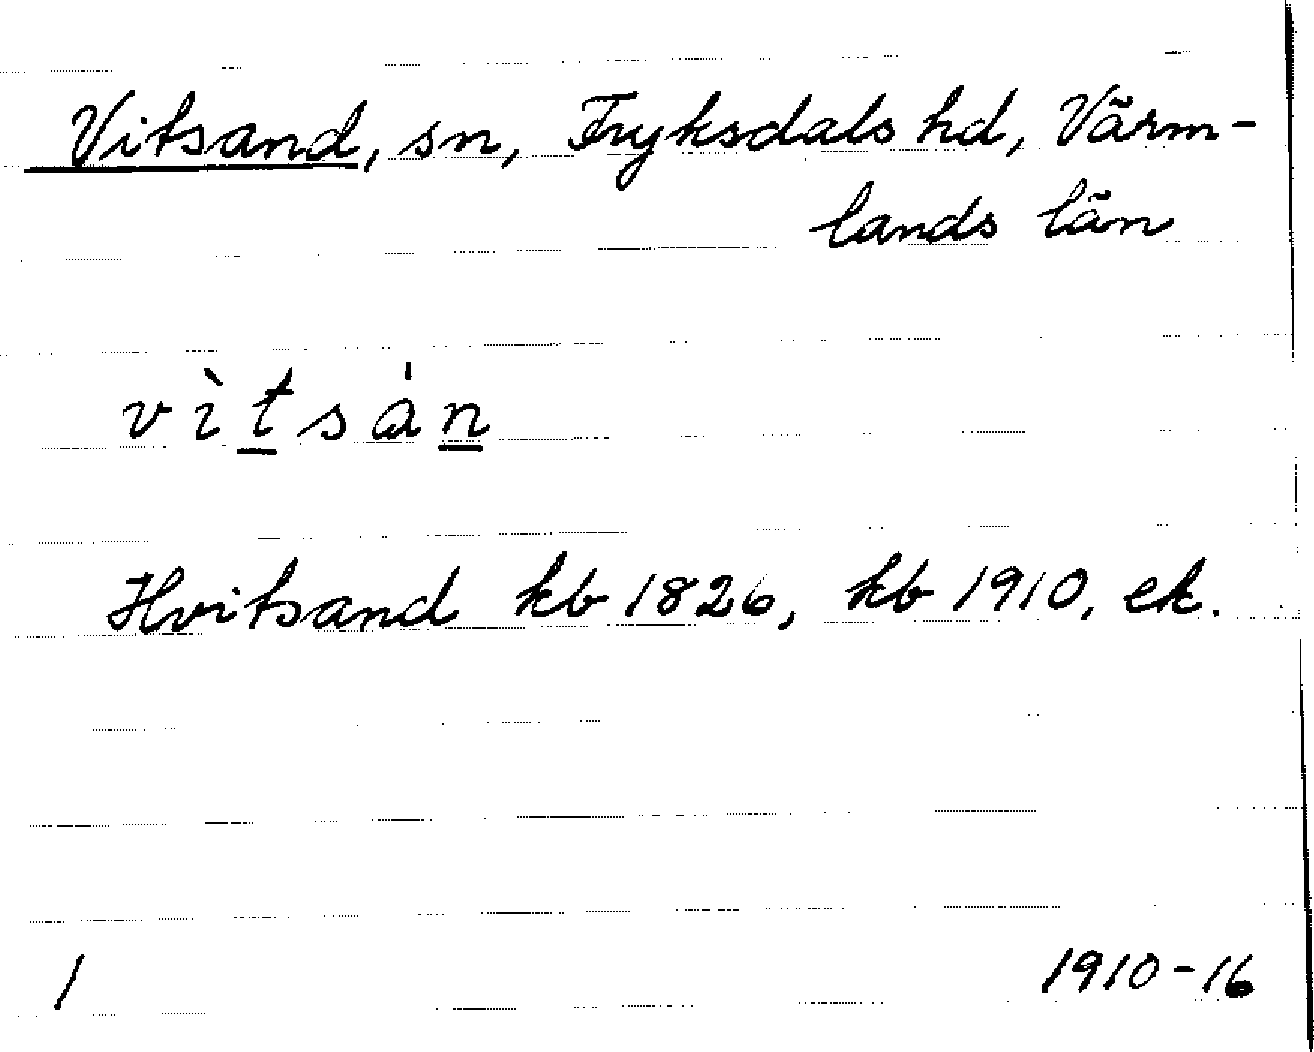 Vitsand, sn, Fryksdals hd, Värm-
lands län
vìtsán
Hvitsand kb 1826, kb 1910, ek.
1
1910-16